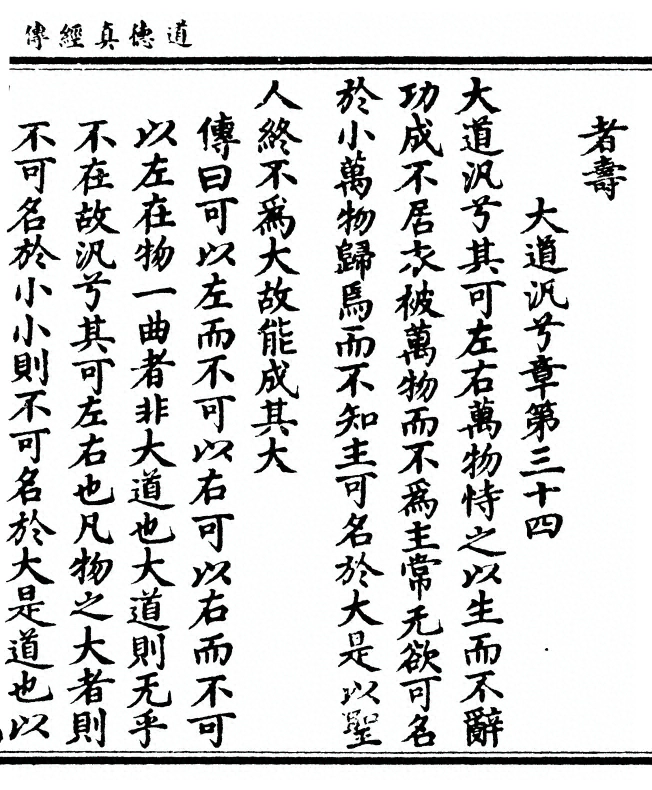 道德真經傳
者壽
大道汎兮章第三十四
大道汎兮其可左右萬物恃之以生而不辭
功成不居衣被萬物而不爲主常无欲可名
於小萬物歸焉而不知主可名於大是以聖
人終不爲大故能成其大
傳曰可以左而不可以右可以右而不可
以左在物一曲者非大道也大道則无乎
不在故汎兮其可左右也凡物之大者則
不可名於小小則不可名於大是道也以